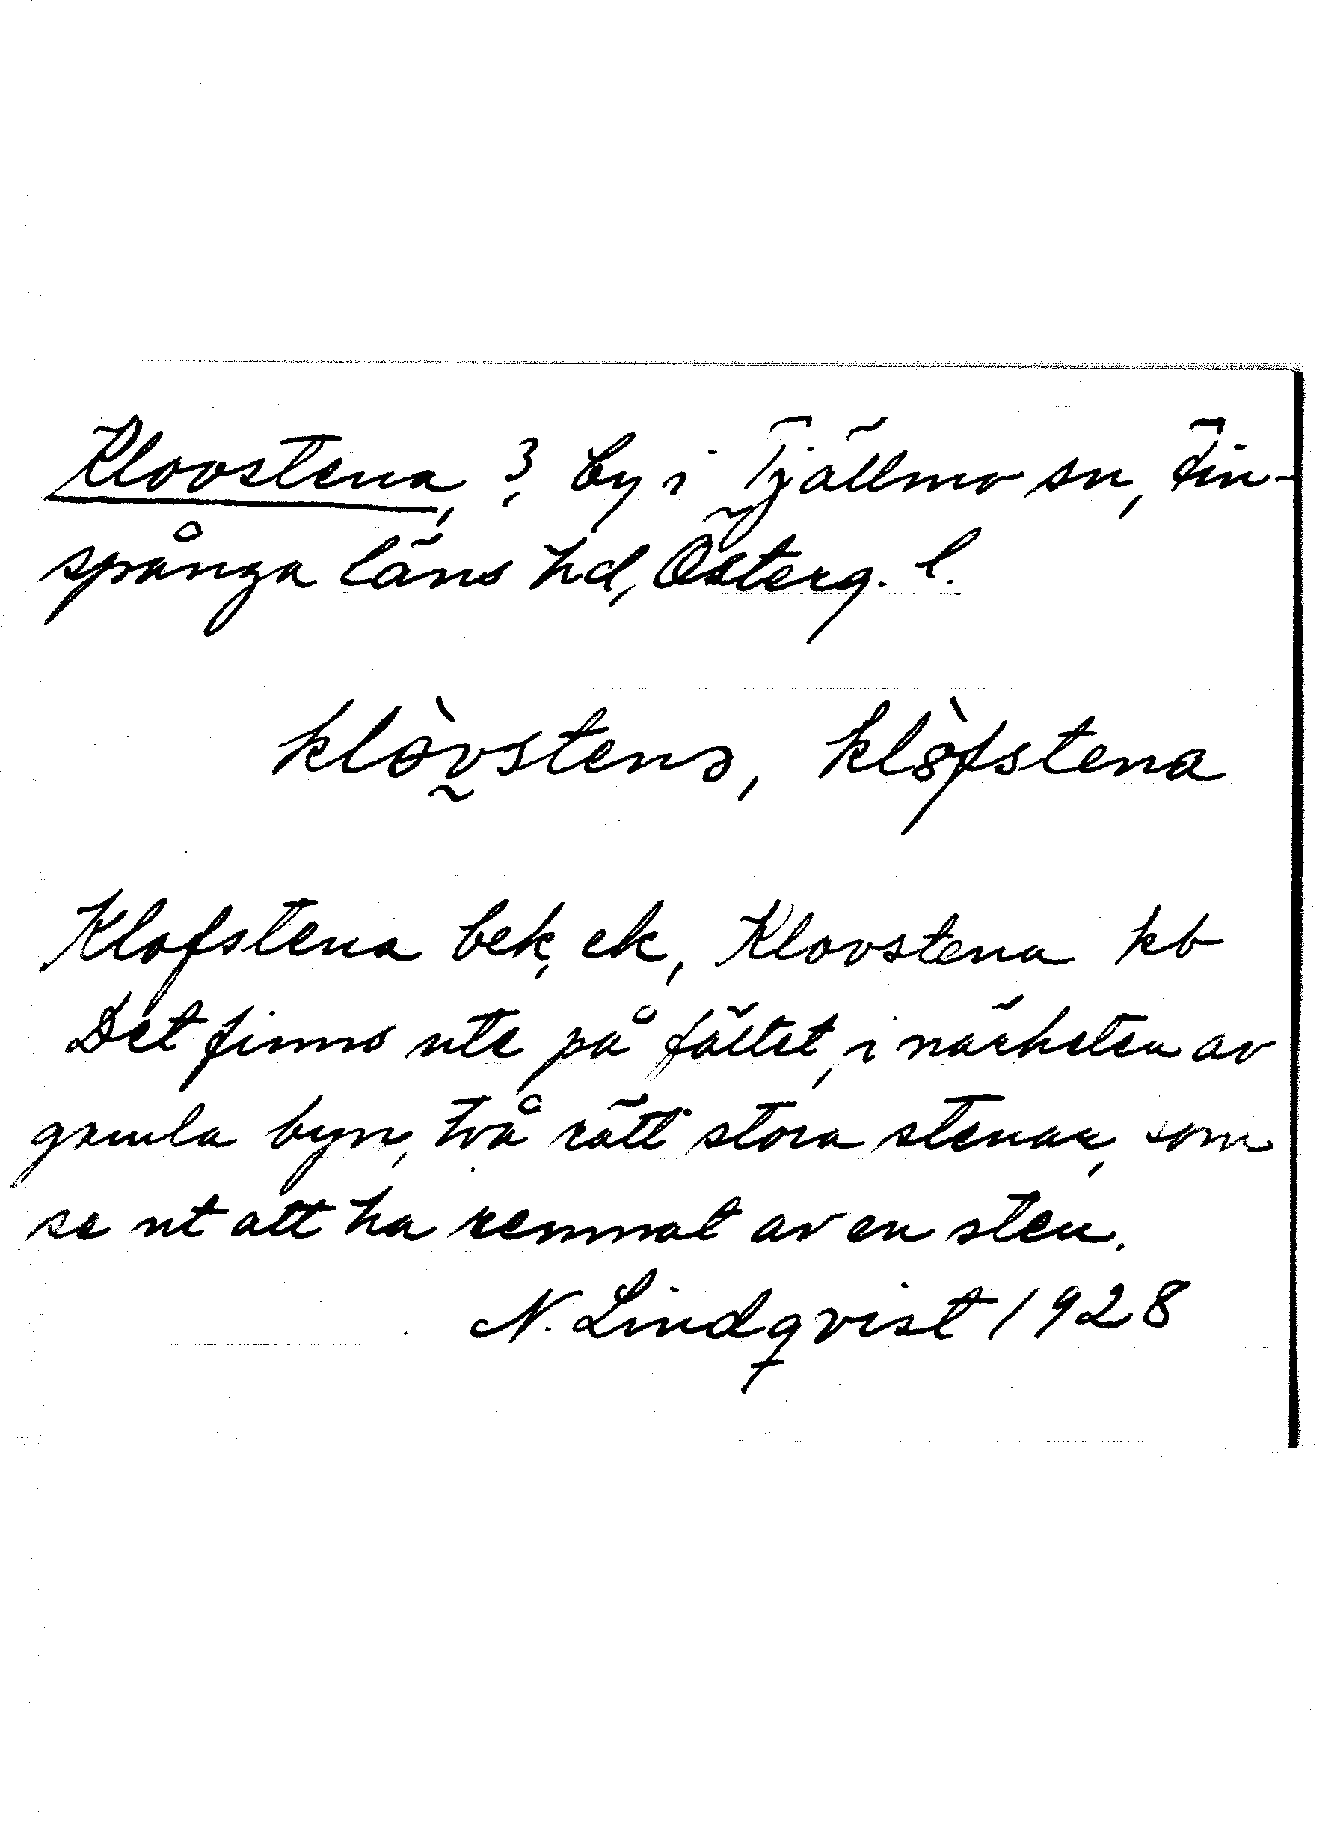 Klovstena, 3, by i Tjällmo sn, Fin-
spånga läns hd, Österg. l.
klòvstenɔ, klòfstena
Klofstena bek, ek, Klovstena kb
Det finns ute på fältet, i närheten av
gamla byn, två rätt stora stenar, som
se ut att ha remnat av en sten.
N. Lindqvist 1928